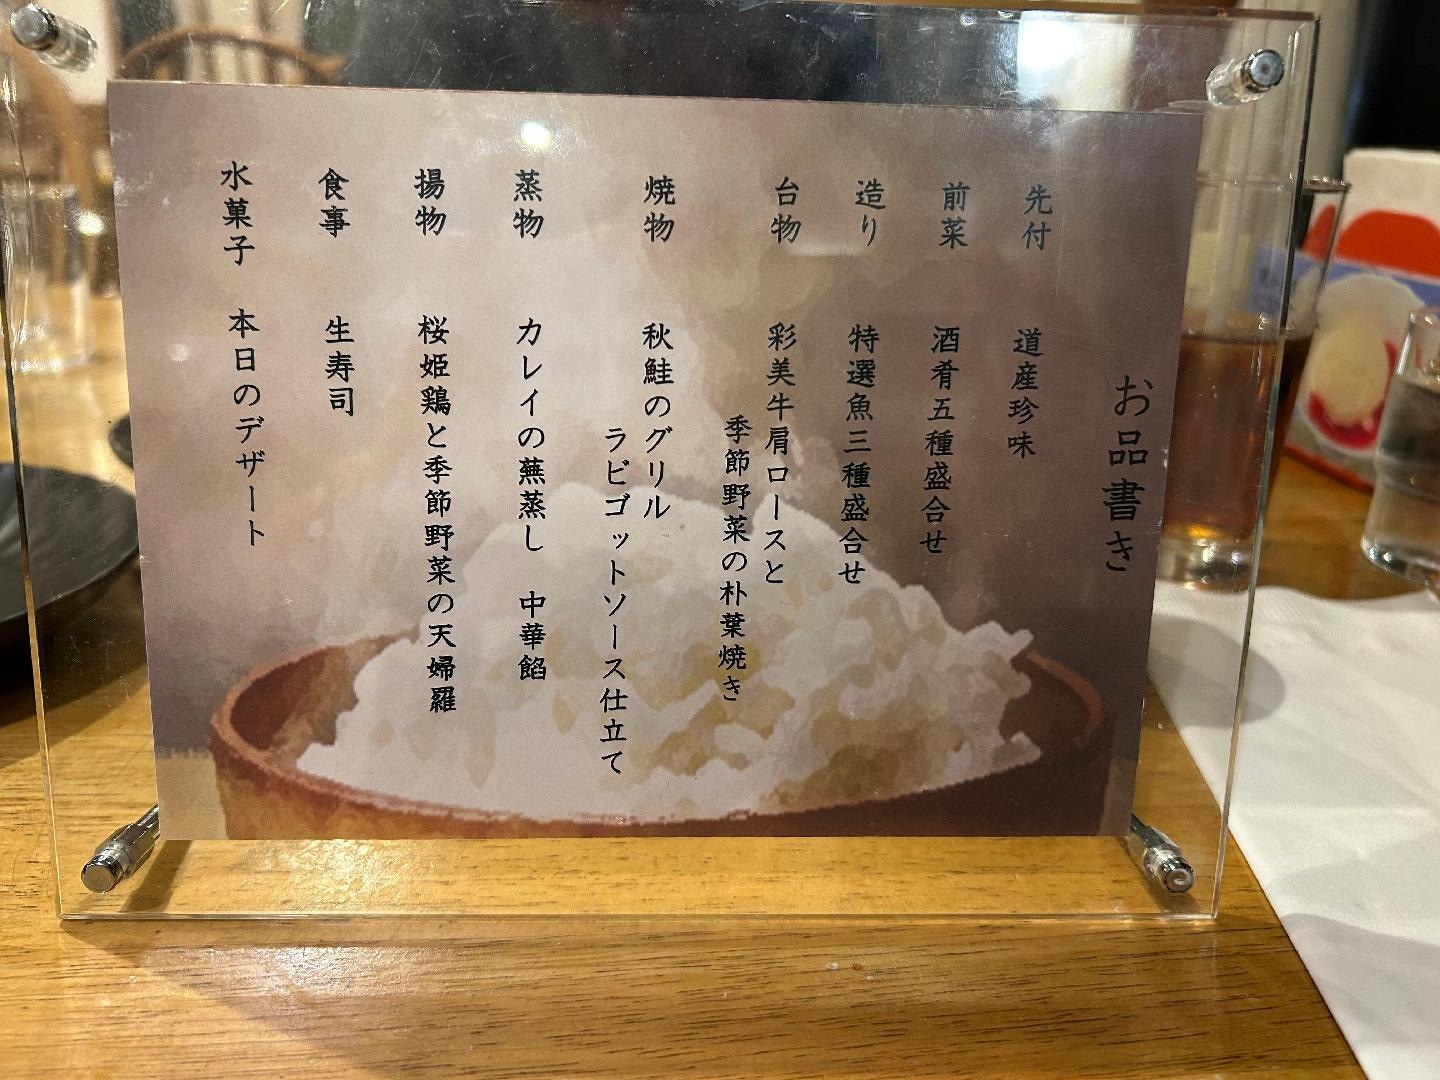 お品書き
先付 道産珍味
前菜 酒肴五種盛合せ
造り 特選魚三種盛合せ
台物 彩美牛肩ロースと
季節野菜の朴葉焼き
焼物 秋鮭のグリル
ラビゴットソース仕立て
蒸物 カレイの蕪蒸し 中華餡
揚物 桜姫鶏と季節野菜の天婦羅
食事 生寿司
水菓子 本日のデザート